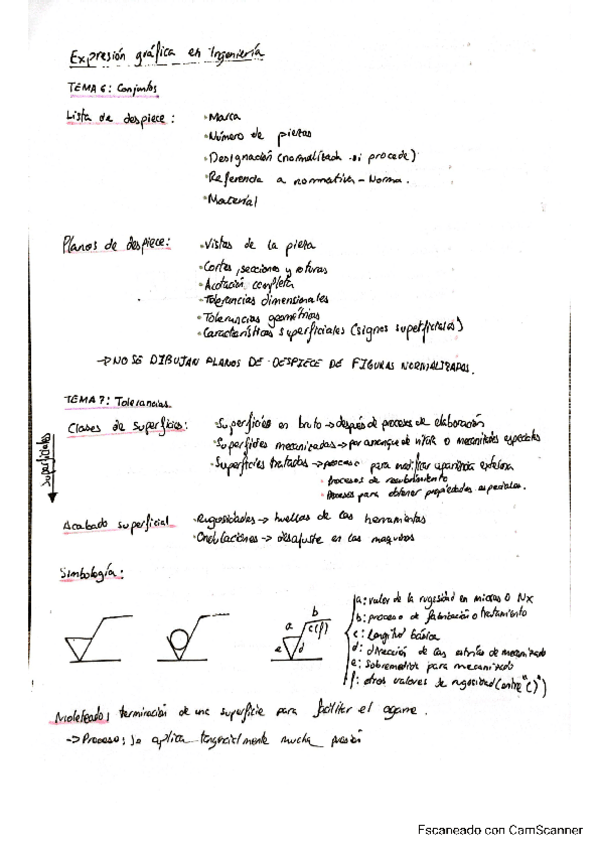 Expresión gráfica en Ingeniería
TEMA 6: Conjuntos
Lista de despiece:
• Marca
• Número de piezas
• Designación (normalizada si procede)
• Referencia a normativa - Norma.
• Material
Planos de despiece:
• Vistas de la pieza
• Cortes, secciones y roturas
• Acotación completa
• Tolerancias dimensionales
• Tolerancias geométricas
• Características superficiales (signos superficiales)
→ NO SE DIBUJAN PLANOS DE DESPIECE DE FIGURAS NORMALIZADAS.
TEMA 7: Tolerancias
Superficiales
Clases de superficies:
• Superficies en bruto → después de procesos de elaboración
• Superficies mecanizadas → por arranque de viruta o mecanizados especiales
• Superficies tratadas → proceso para modificar apariencia externa
• Procesos de recubrimiento
• Procesos para obtener propiedades especiales.
Acabado superficial
• Rugosidades → huellas de las herramientas
• Ondulaciones → desajuste en las maquinas
Simbología:
b
a c(f)
e d
a: valor de la rugosidad en micras o Nx
b: proceso de fabricación o tratamiento
c: Longitud básica
d: dirección de las estrías de mecanizado
e: sobremedida para mecanizado
f: otros valores de rugosidad (entre "()")
Moleteado: terminación de una superficie para facilitar el agarre.
→ Proceso: se aplica tangencialmente mucha presión
Escaneado con CamScanner